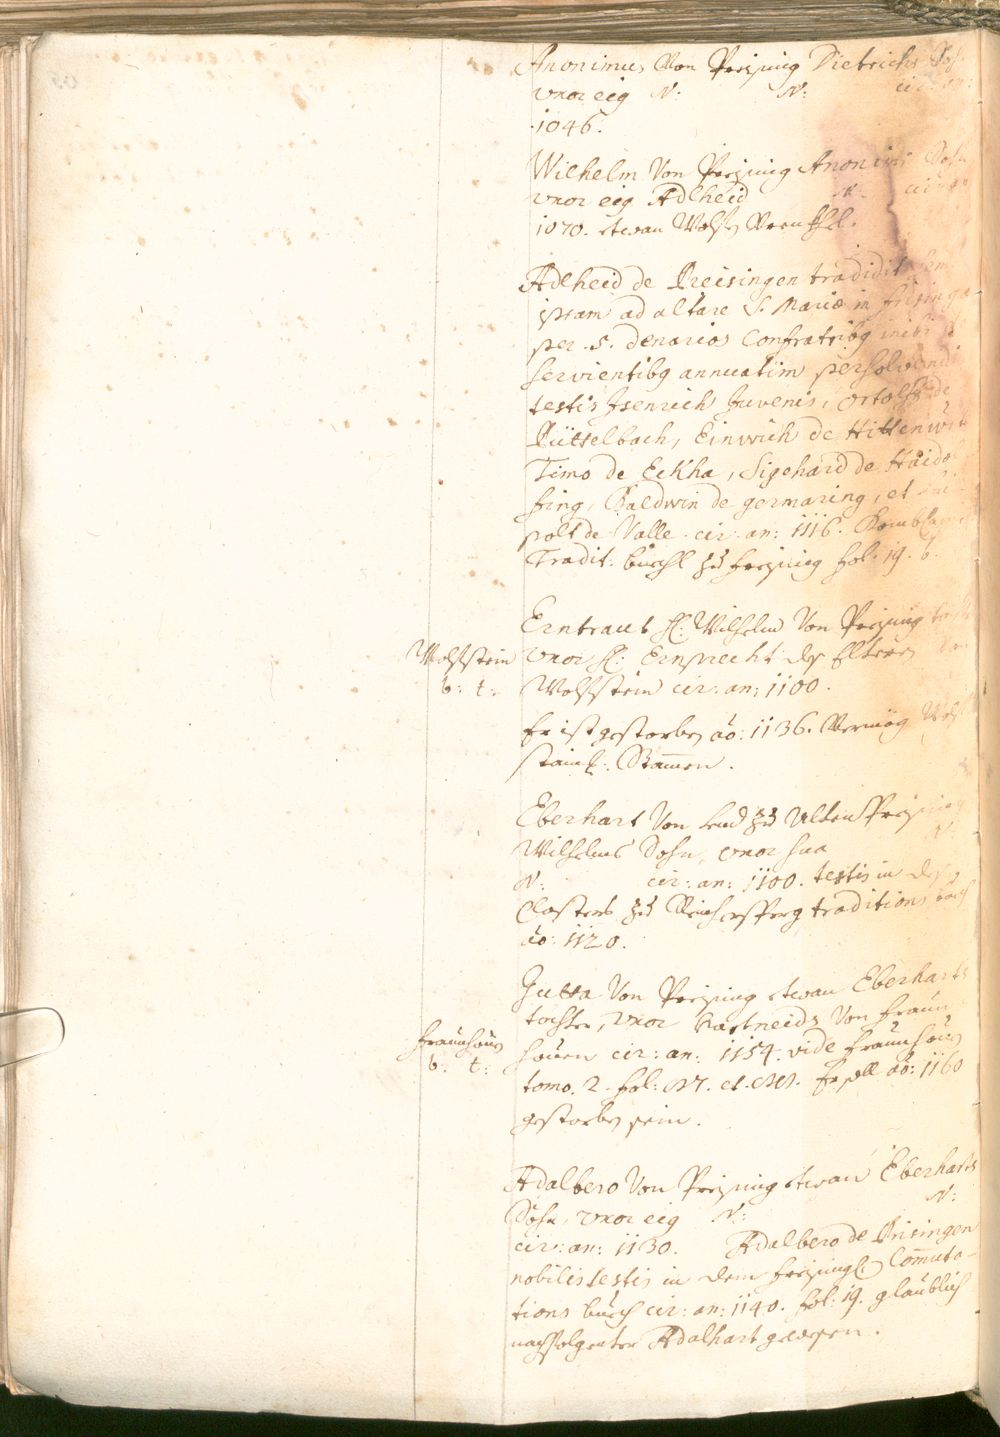 Anonimus Von Preising Dietrichs Sohn
vxor eig N: N: cir: an:
1046.
Wilhelm Von Preising Anonimi Sohn
vxor eig Adlheid N. cir: an:
1070. etwan
Adlheid de Preisingen tradidit sem
ipsam ad altare S. Mariæ in frisinga
per .5. denarios Confratribg inibi d
servientibg annuatim persolvendi
testis Isenrich Juvenis, Ortolf de
Püttelbach, Einwich de Hittenwi
Timo de Eckha, Sigehard de Haidol
fing, Baldwin de germaring, et
polt de Valle. cir: an: 1116.
Tradit: buechl zu freising fol. 19. b.
Erntraut H: Wilhelm Von Preising
Wolfstein vxor H: Ernprecht des Eltern Von
b: t: Wolfstein cir: an: 1100.
Er ist gestorben ao: 1136. Vermög Wolf
stainl: Stammen.
Eberhart Von und zu Alten Preising
Wilhelms Sohn, vxor sua N:
N: cir: an: 1100. testis in des
Closters zu Reichersperg traditions buech
ao: 1120.
Gutta Von Preising etwan Eberharts
tochter, vxor Hartneids Von fraun
fraunhoven hoven cir: an: 1154. vide fraunhoven
b: t: tomo. 2. fol: et. Er soll ao: 1160
gestorben sein.
Adalbero Von Preising etwan Eberharts
Sohn, vxor eig N: N:
cir: an: 1130. Adalbero de Prisingen
nobilis testis in dem freisingl: Com̄uta-
tions buech cir: an: 1140. fol: 19. glaublich
nachfolgenter Adalhart gewesen.